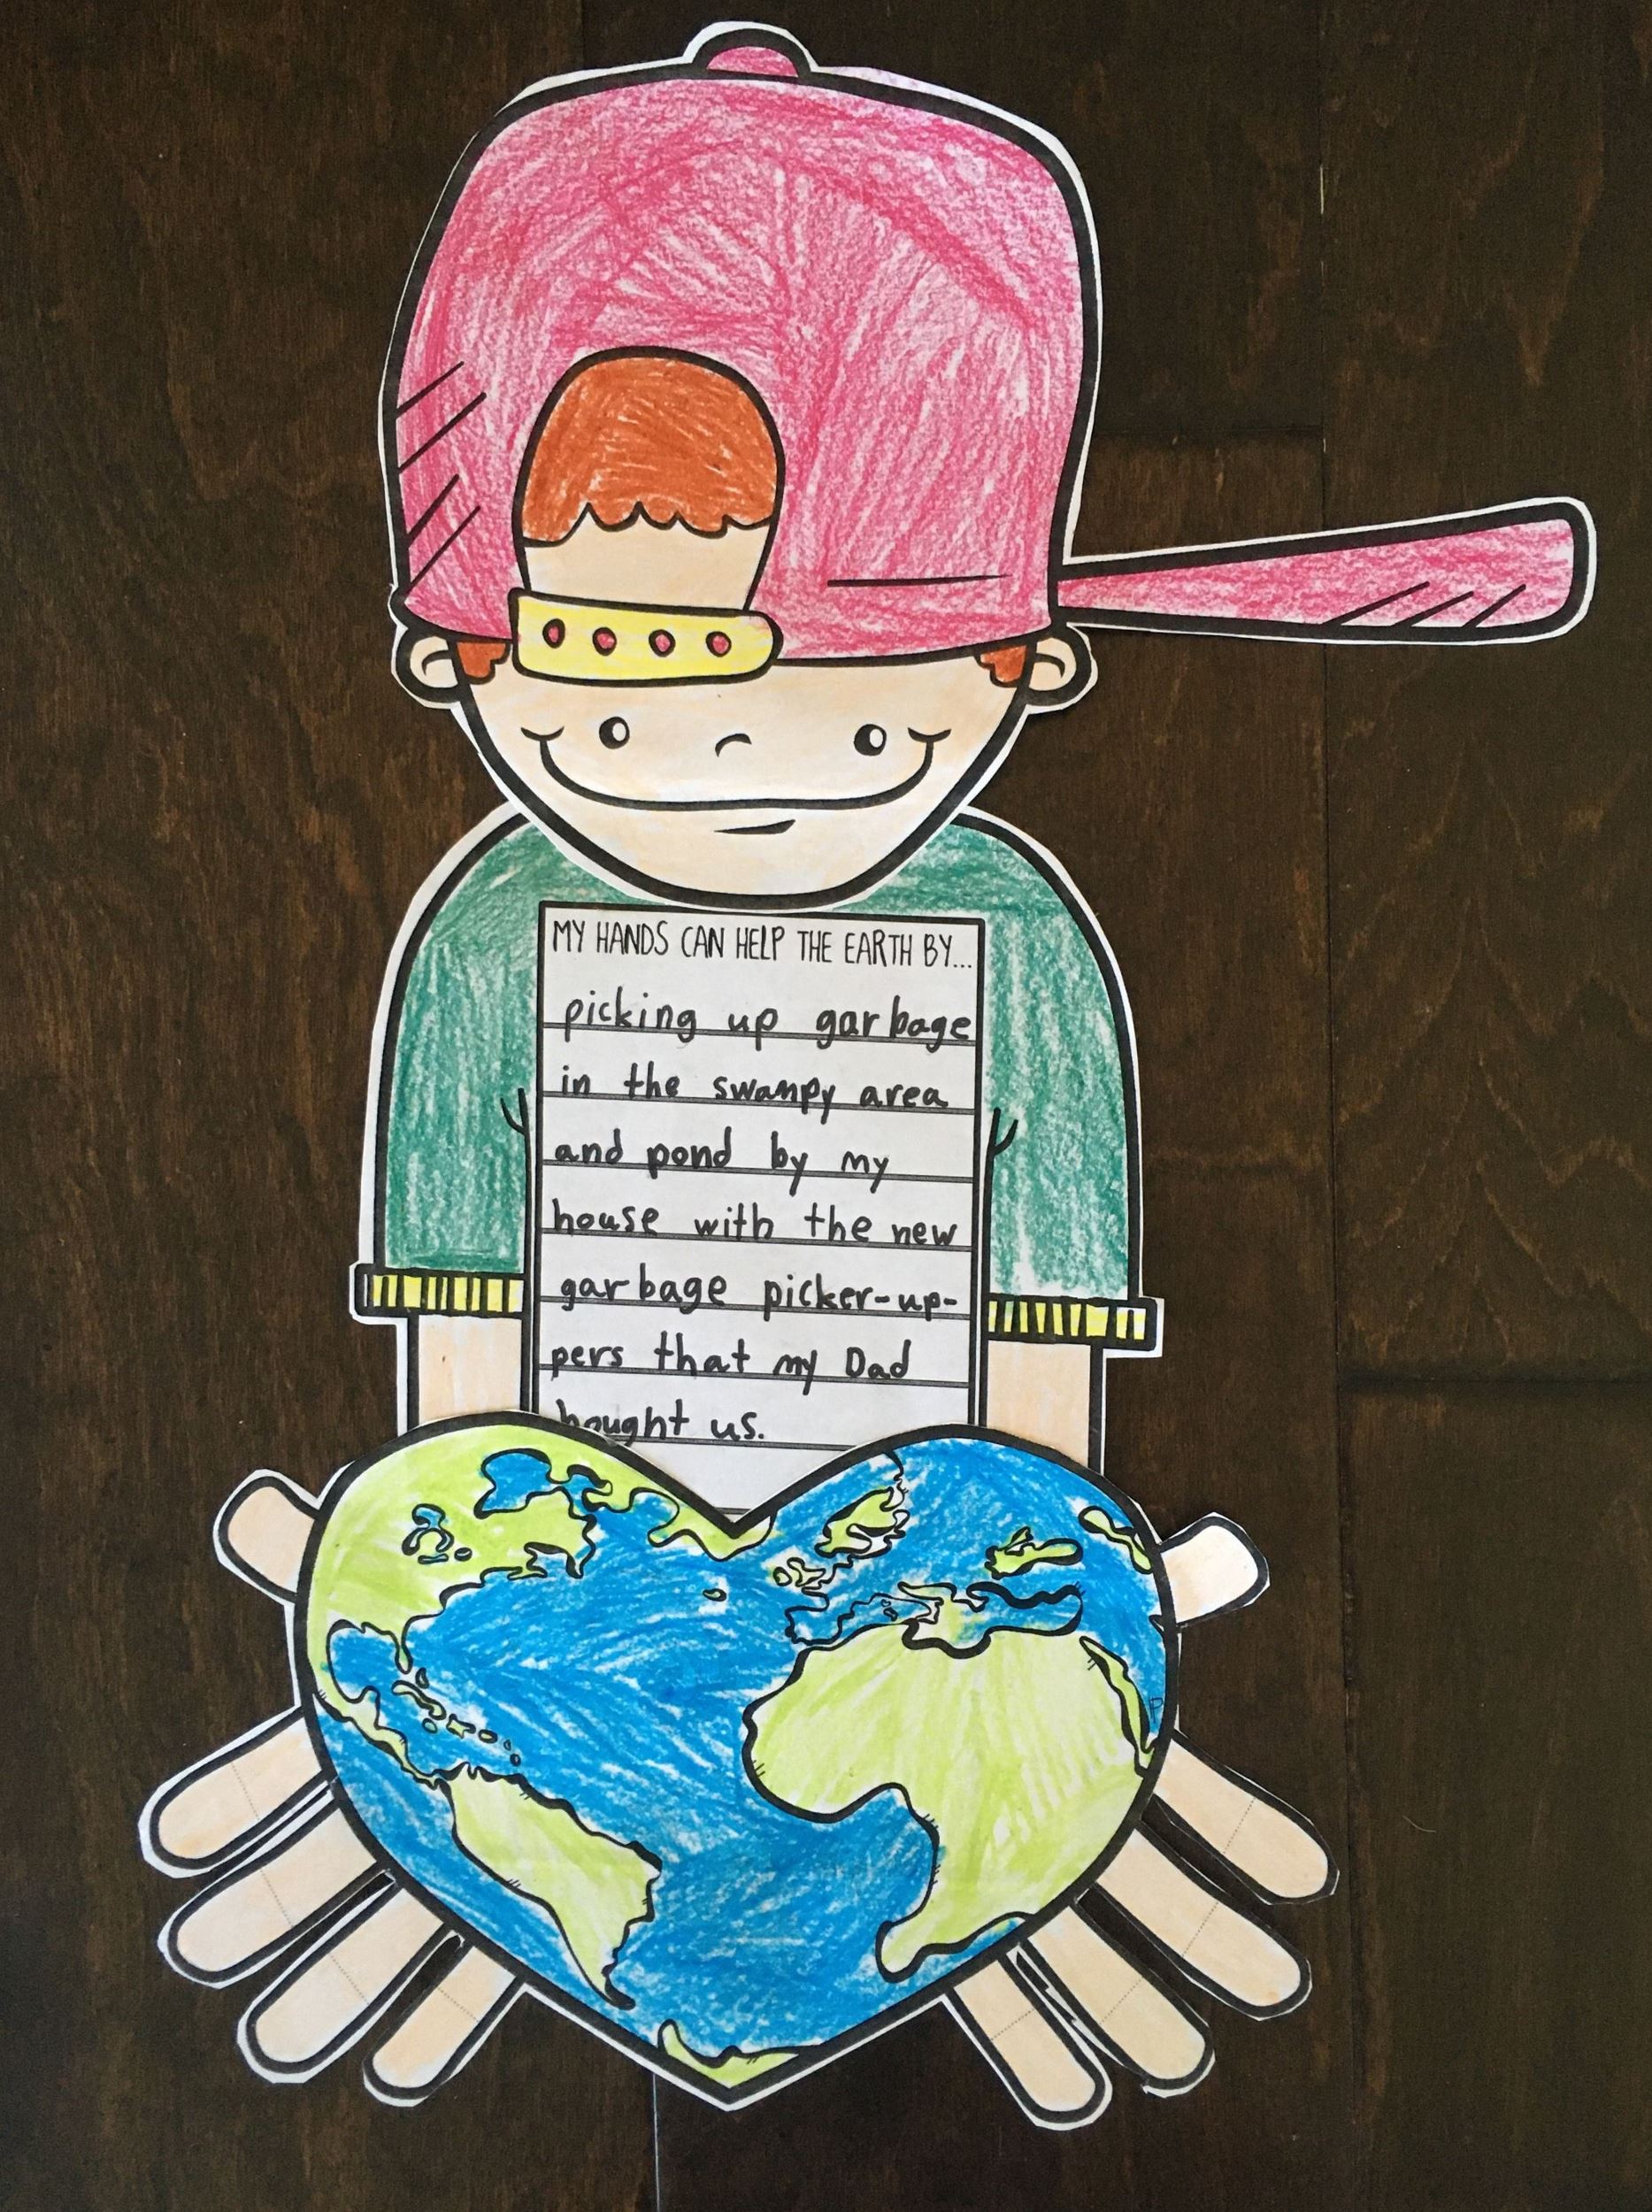 MY HANDS CAN HELP THE EARTH BY...
picking up garbage
in the swampy area
and pond by my
house with the new
garbage picker-up-
pers that my Dad
bought us.